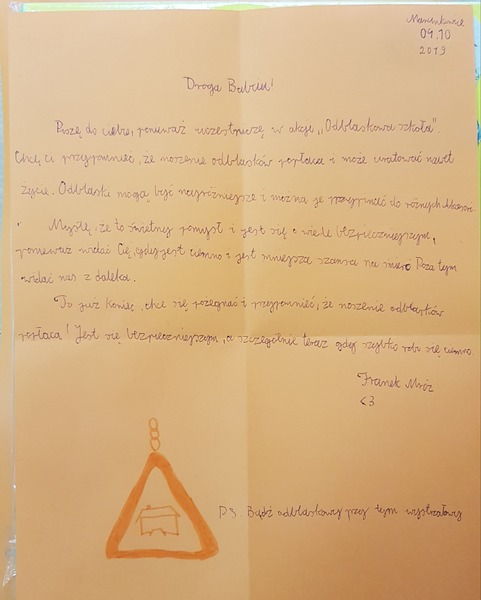 09.10
2019
Droga Babciu!
Piszę do ciebie, ponieważ uczestniczę w akcji „Odblaskowa szkoła".
Chcę ci przypomnieć, że noszenie odblasków popłaca i może uratować nawet
życie. Odblaski mogą być najróżniejsze i można je przypinać do różnych
Myślę, że to świetny pomysł i jest się o wiele bezpieczniejszym,
ponieważ widać Cię, gdy jest ciemno i jest mniejsza szansa na Poza tym
widać nas z daleka.
To już koniec, chcę się pożegnać i przypomnieć, że noszenie odblasków
popłaca! Jest się bezpieczniejszym, a szczególnie teraz gdy szybko robi się ciemno.
Franek Mróz
<3
PS. Bądź odblaskowy przy tym wystrzałowy